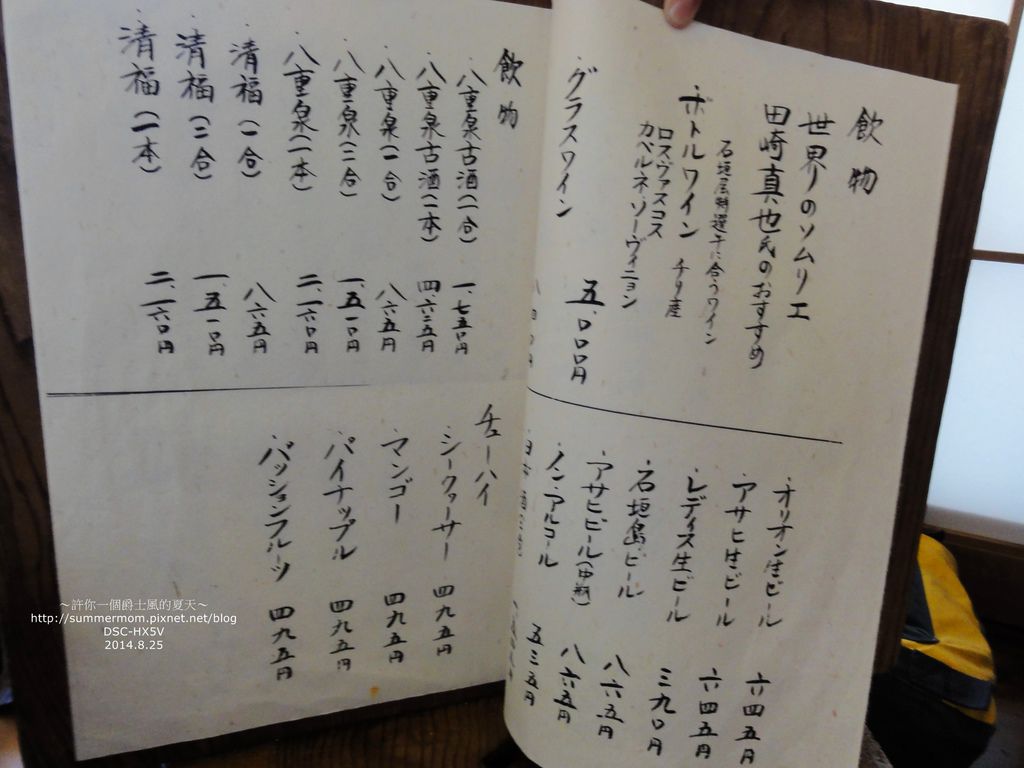 飲物
世界のソムリエ
田崎真也氏のおすすめ
石垣屋特選牛に合うワイン
・ボトルワイン チリ産
ロス・ヴァスコス
カベルネ・ソーヴィニョン
五、〇〇〇円
・グラスワイン
・オリオン生ビール 六四五円
・アサヒ生ビール 六四五円
・レディス生ビール 三九〇円
・石垣島ビール 八六五円
・アサヒビール(中瓶) 八六五円
・ノンアルコール 五三五円
飲物
・八重泉古酒(一合) 一、七五〇円
・八重泉古酒(一本) 四、六二五円
・八重泉(一合) 八六五円
・八重泉(二合) 一、五一〇円
・八重泉(一本) 二、一六〇円
・清福(一合) 八六五円
・清福(二合) 一、五一〇円
・清福(一本) 二、一六〇円
チューハイ
・シークァーサー 四九五円
・マンゴー 四九五円
・パイナップル 四九五円
・パッションフルーツ 四九五円
～許你一個爵士風的夏天～
http://summermom.pixnet.net/blog
DSC-HX5V
2014.8.25